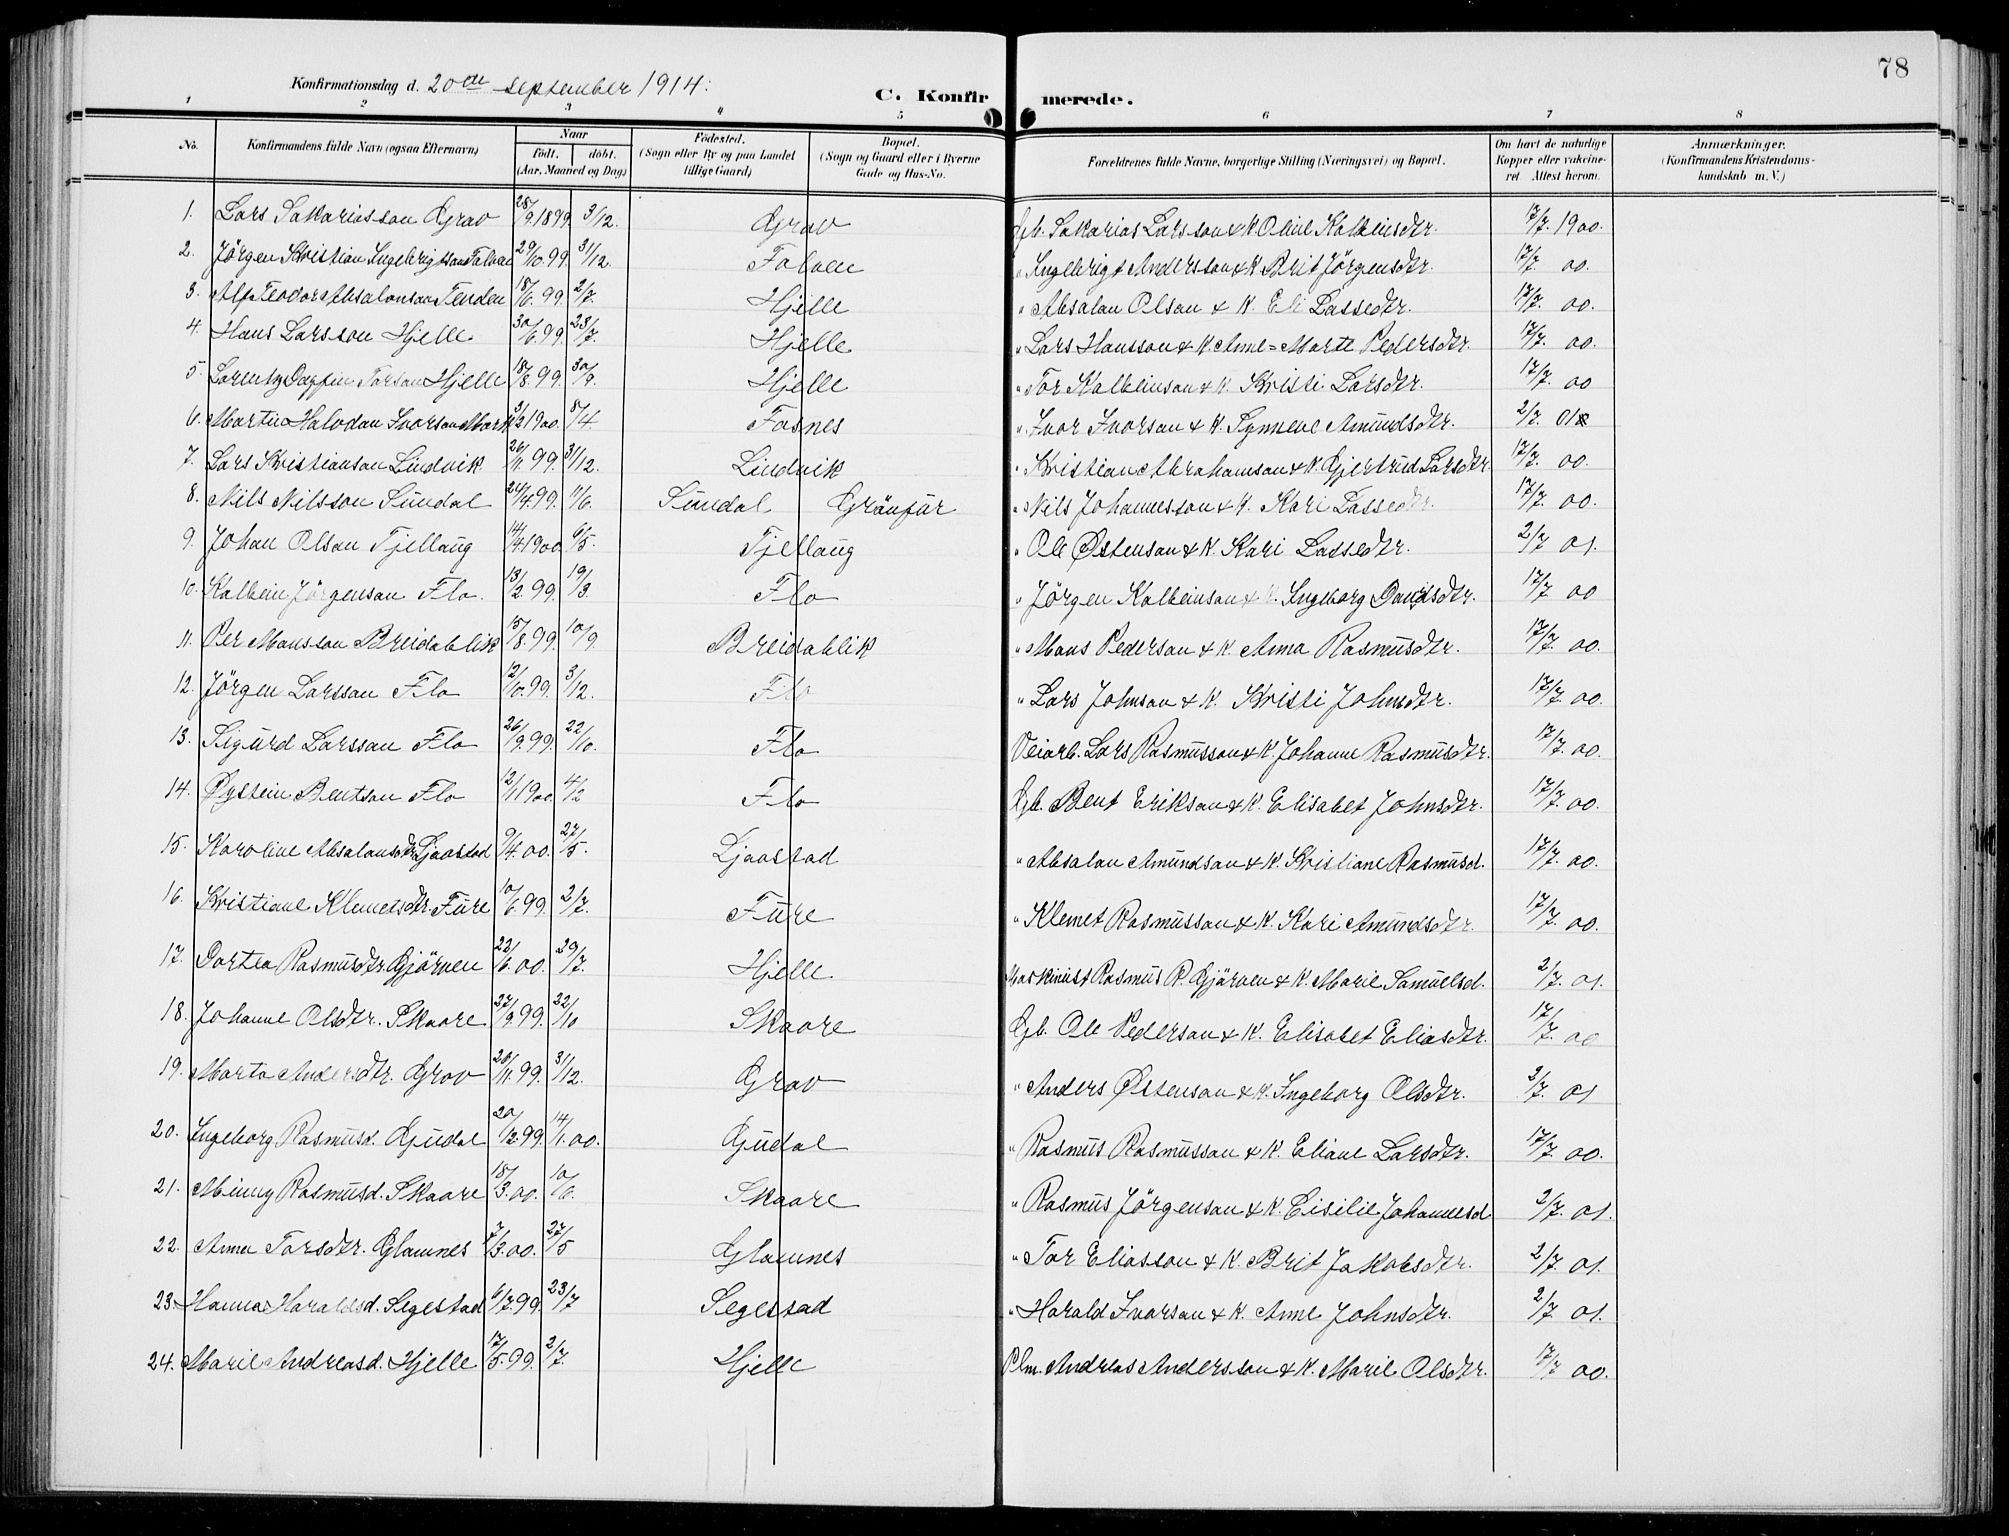 78
Konfirmationsdag d. 20de september 1914.
C. Konfirmerede.
1 2 3 4 5 6 7 8
No. Konfirmandens fulde Navn (ogsaa Efternavn) Naar födt. döbt. (Aar, Maaned og Dag) Födested. (Sogn eller By og paa Landet tillige Gaard) Bopæl. (Sogn og Gaard eller i Byerne Gade og Hus-No. Forældrenes fulde Navne, borgerlige Stilling (Næringsvei) og Bopæl. Om havt de naturlige Kopper eller vakcineret Attest herom. Anmærkninger. (Konfirmandens Kristendomskundskab m. V.)
1. Lars Sakariasson Grav 28/9 1899. 3/12. Grav Gb. Sakarias Larsson & K. Oline Kolbeinsdtr. 17/7. 1900.
2. Jörgen Kristian Ingebrigtson Folven 29/10. 99. 31/12. Folven " Ingebrigt Andersson & K. Brit Jörgensdtr. 17/7. 00.
3. Alf Teodor Absalonson Tenden 18/6. 99. 2/7. Hjelle " Absalon Olson & K. Eli Lassedtr. 17/7. 00.
4. Hans Larsson Hjelle 30/6. 99. 23/7. Hjelle " Lars Hansson & K. Anne=Marte Pedersdtr. 17/7. 00.
5. Lorentz Dagfin Torson Hjelle 18/8. 99. 30/9. Hjelle " Tor Kolbeinson & K. Kristi Larsdtr. 17/7. 00
6. Martin Halvdan Ivarson Mork 3/2 1900. 8/4. Fosnes " Ivar Ivarson & K. Synneve Amundsdtr. 2/7. 01
7. Lars Kristianson Lindvik 26/11. 99. 31/12. Lindvik " Kristian Abrahamson & K. Gjertrud Larsdtr. 17/7. 00.
8. Nils Nilsson Sundal 24/4. 99. 11/6. Sundal Gränfur " Nils Johannesson & K. Kari Lassedtr. 17/7. 00.
9. Johan Olson Tjellaug 14/4. 1900. 6/5. Tjellaug " Ole Østenson & K. Kari Lassedtr. 2/7 01.
10. Kolbein Jörgenson Flo. 13/2. 99. 19/3. Flo " Jörgen Kolbeinson & K. Ingeborg Davidsdtr. 17/7 00
11. Per Monsson Breidablik 15/8. 99. 10/9. Breidablik " Mons Pederson & K. Anna Rasmusdtr. 17/7. 00.
12. Jörgen Larsson Flo 12/10. 99. 3/12. Flo " Lars Johnson & K. Kristi Johnsdtr. 17/7. 00.
13. Sigurd Larsson Flo 26/9. 99. 22/10. Flo Veiarb. Lars Rasmusson & K. Johanne Rasmusdtr. 17/7. 00.
14. Øystein Bentson Flo 12/1 1900. 4/2 Flo Gb. Bent Erikson & K. Elisabet Johnsdtr. 17/7. 00.
15. Karoline Absalonsdtr. Ljaastad 9/4. 00. 27/5. Ljaastad " Absalon Amundson & K. Kristiane Rasmusd. 17/7. 00.
16. Kristiane Klemetsdtr. Fure 10/6. 99. 2/7. Fure " Klemet Rasmusson & K. Kari Amundsdtr. 17/7. 00.
17. Dortea Rasmusdtr. Gjörven 22/6. 00. 29/7. Hjelle Maskinist Rasmus R. Gjörven & K. Marie Samuelsd. 2/7. 01.
18. Johanne Olsdtr. Skaare 27/9. 99. 22/10 Skaare Gb. Ole Pederson & K. Elisabet Eliasdtr. 17/7. 00
19. Marta Andersdtr. Grov 28/11. 99. 31/12. Grav " Anders Østenson & K. Ingeborg Olsdtr. 2/7. 01
20. Ingeborg Rasmusd. Gjudal 20/12. 99. 14/1. 00. Gjudal " Rasmus Rasmusson & K. Eliane Larsdtr. 17/7. 00.
21. Minny Rasmusd. Skaare 18/3. 00. 10/6. Skaare " Rasmus Jörgenson & K. Cisilie Johannesd. 2/7. 01.
22. Anna Torsdtr. Glomnes 7/3. 00. 27/5 Glomnes " Tor Eliasson & K. Brit Jakobsdtr. 2/7. 01.
23. Hanna Haraldsd. Segestad 6/7. 99. 23/7 Segestad " Harald Ivarson & K. Anne Johnsdtr. 2/7 01.
24. Marie Andreasd. Hjelle 17/5. 99. 2/7. Hjelle Plm. Andreas Andersson & K. Marie Olsdtr. 17/7 00.